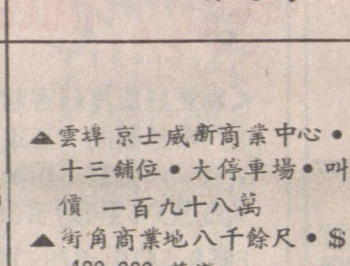 ▲雲埠 京士威新商業中心•
十三舖位•大停車場•叫
價 一百九十八萬
▲街角商業地八千餘尺•$